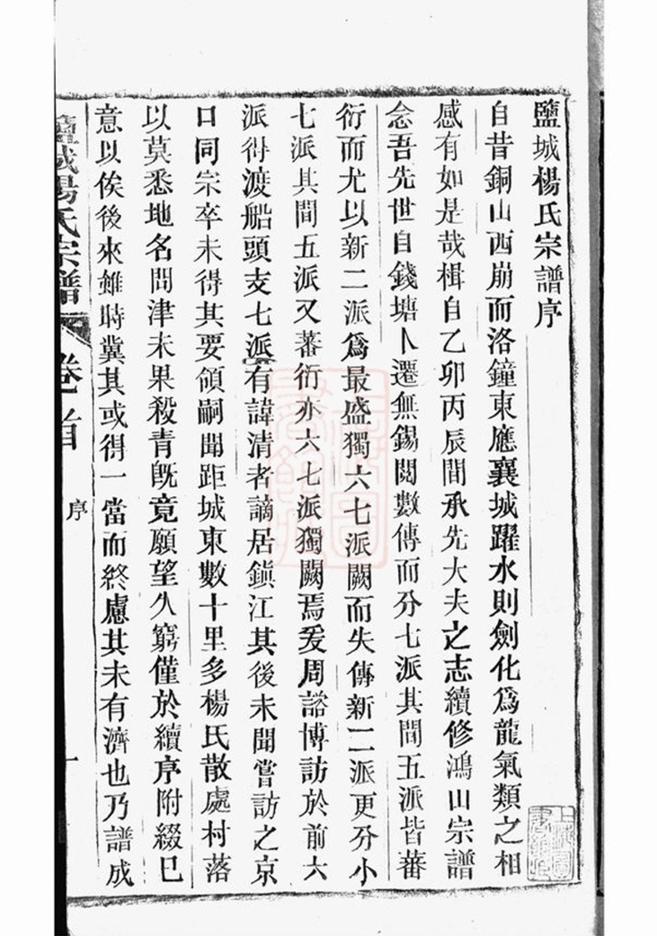 鹽城楊氏宗譜序
自昔銅山西崩而洛鐘東應襄城躍水則劍化爲龍氣類之相
感有如是哉楫自乙卯丙辰間承先大夫之志續修鴻山宗譜
念吾先世自錢塘卜遷無錫閱數傳而分七派其間五派皆蕃
衍而尤以新二派爲最盛獨六七派闕而失傳新二派更分小
七派其間五派又蕃衍亦六七派獨闕焉爰周諮博訪於前六
派得渡船頭支七派有諱清者謫居鎮江其後未聞嘗訪之京
口同宗卒未得其要領嗣聞距城東數十里多楊氏散處村落
以莫悉地名問津未果殺青旣竟願望乆窮僅於續序附綴巳
意以俟後來雖時冀其或得一當而終慮其未有濟也乃譜成
鹽城楊氏宗譜 卷首 序 一